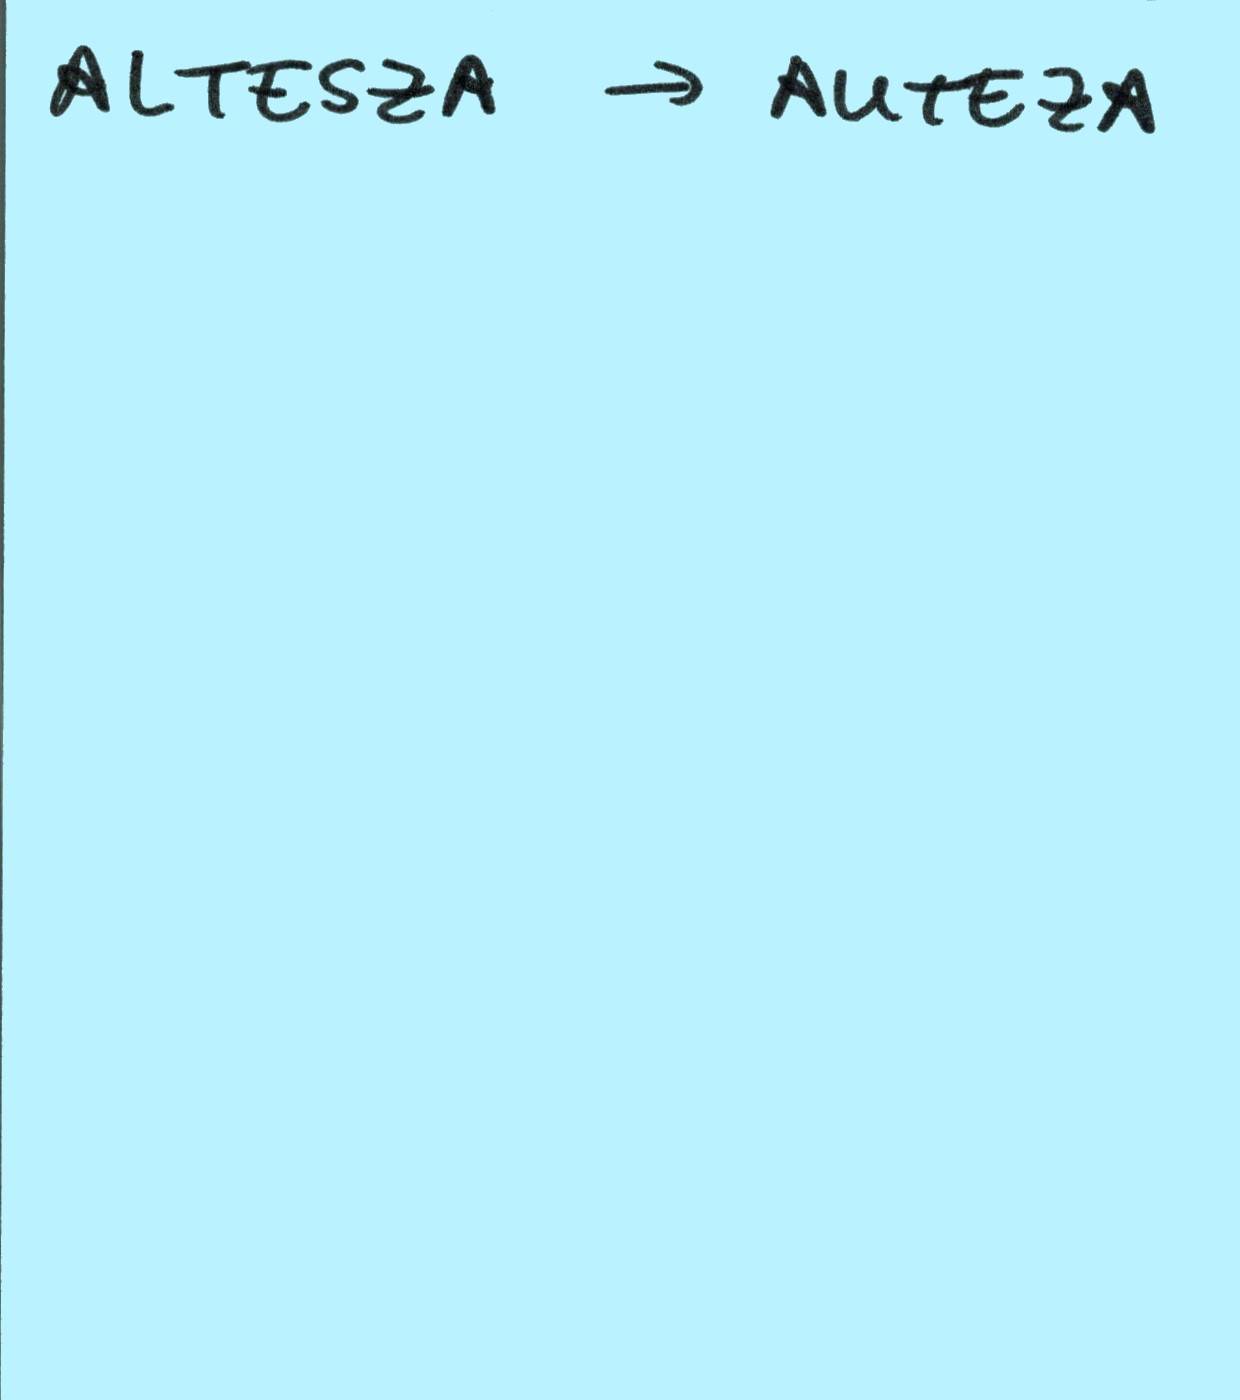 ALTESZA → AUTEZA